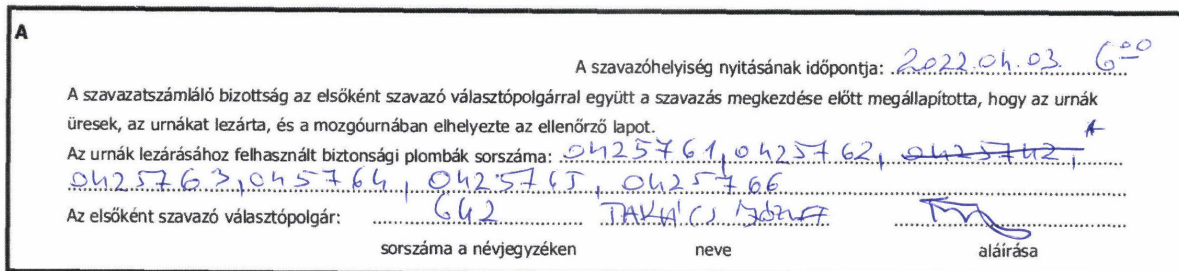 A
A szavazóhelyiség nyitásának időpontja: 2022.04.03. 6⁰⁰
A szavazatszámláló bizottság az elsőként szavazó választópolgárral együtt a szavazás megkezdése előtt megállapította, hogy az urnák
üresek, az urnákat lezárta, és a mozgóurnában elhelyezte az ellenőrző lapot.
Az urnák lezárásához felhasznált biztonsági plombák sorszáma: 0425761, 0425762, 0425742,
0425763, 045764, 0425765, 0425766
Az elsőként szavazó választópolgár: 642 TAKÁCS
sorszáma a névjegyzéken neve aláírása